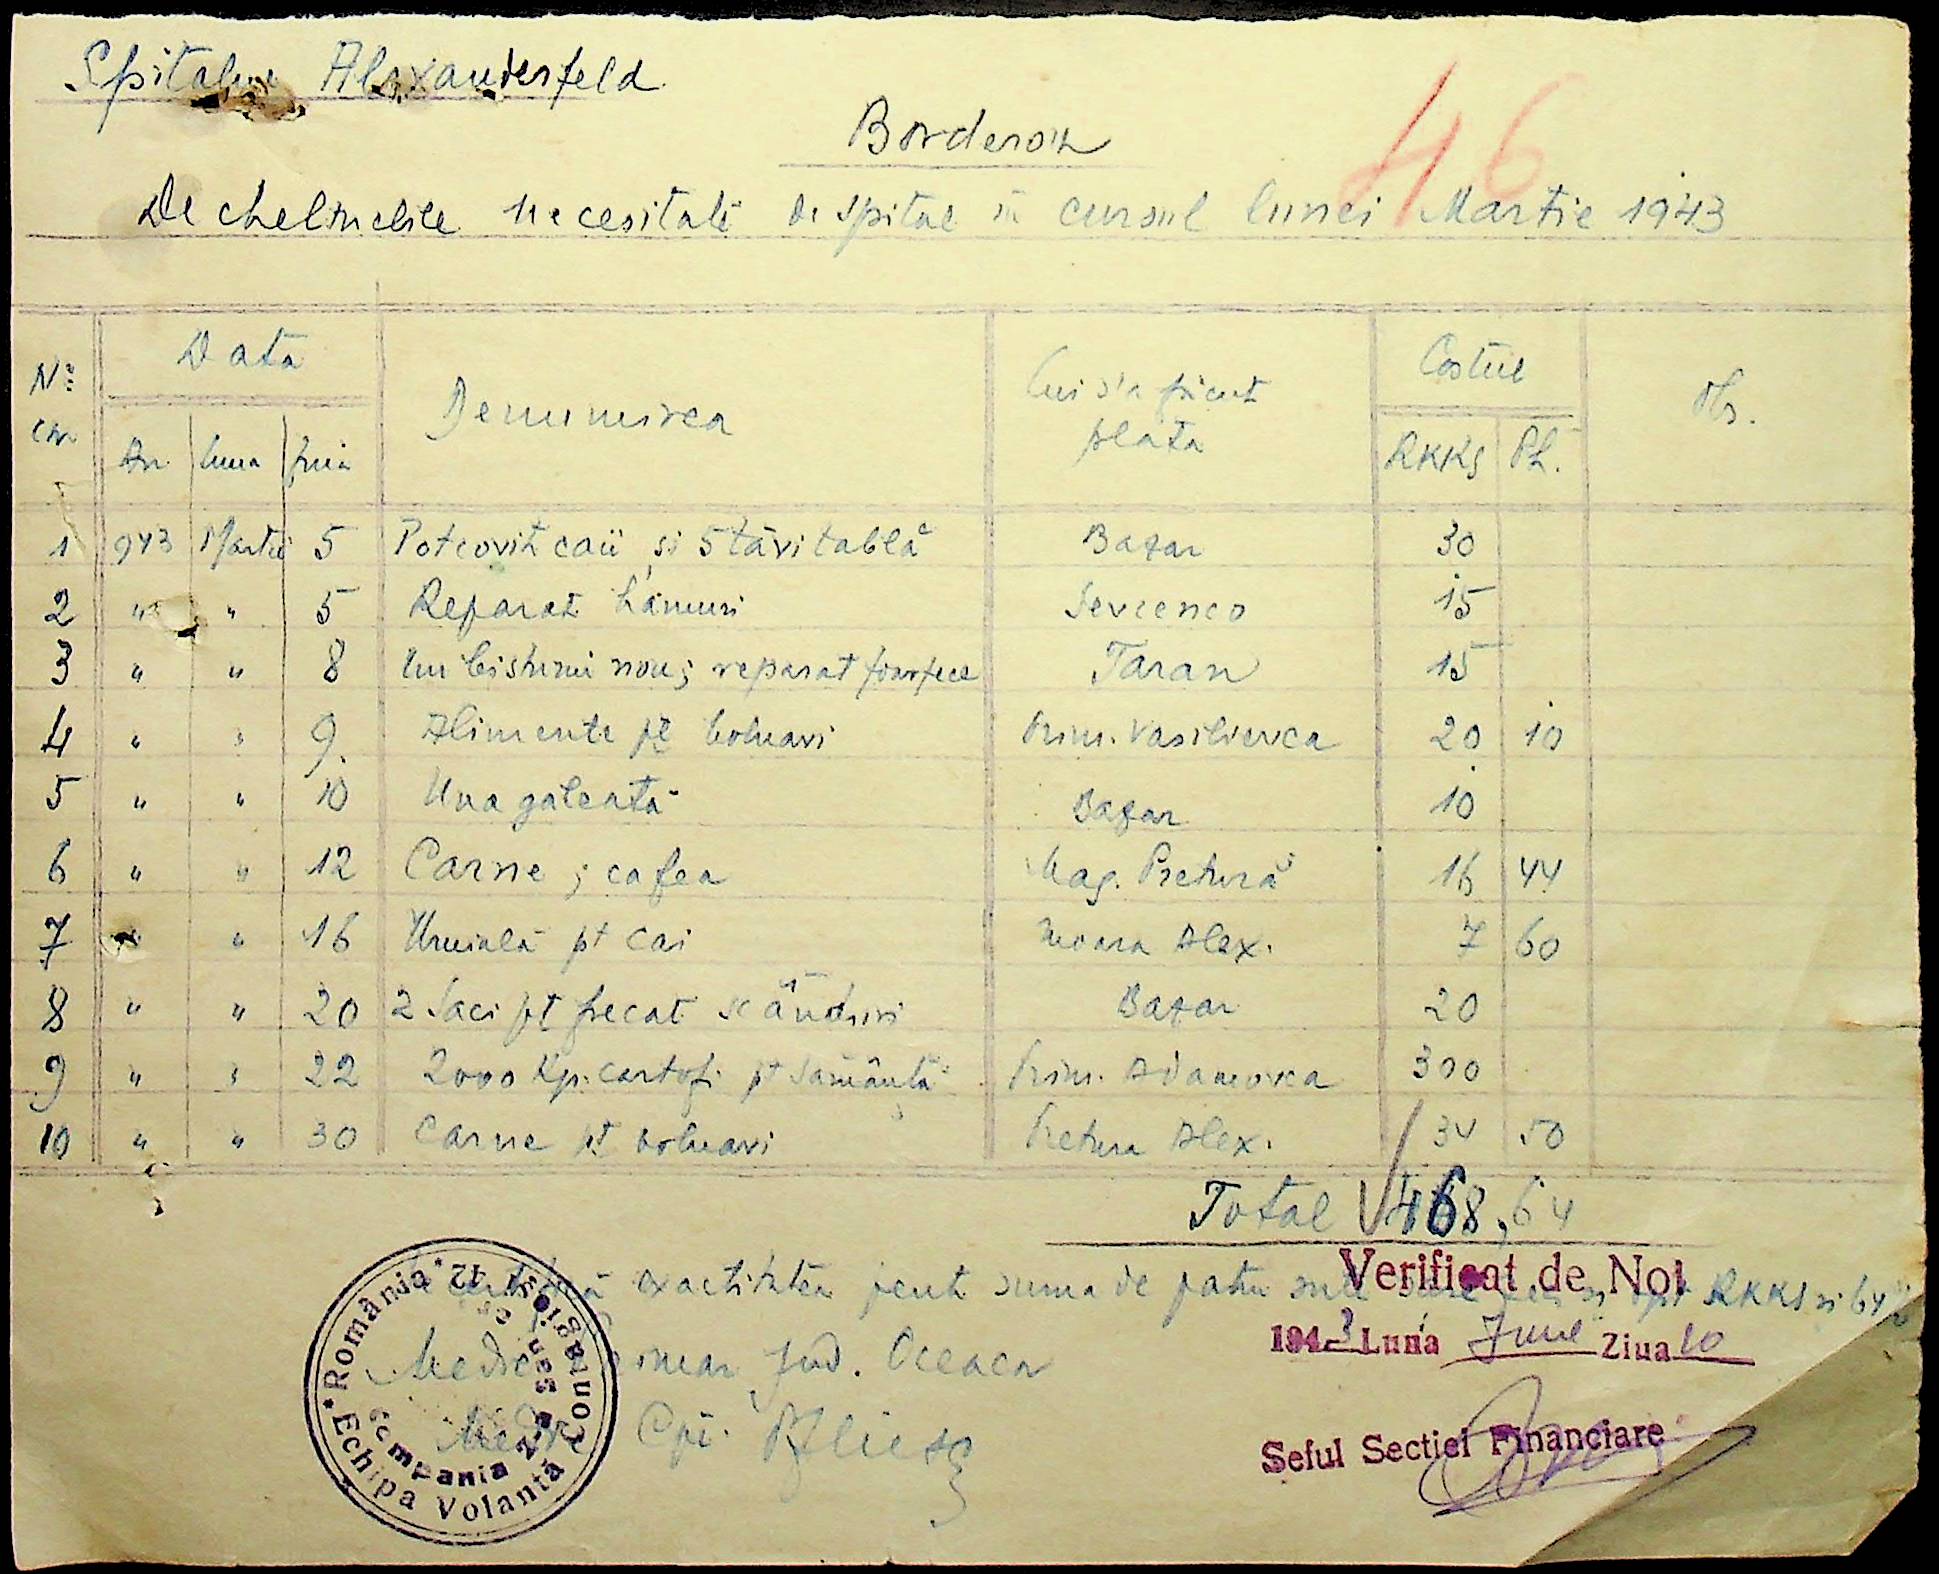 Spitalul Alexanderfeld
46
Borderou
De cheltuelile necesitate de spital în cursul lunei Martie 1943
No cr. Data Denumirea Cui s'a făcut plata Costul Obs.
An luna ziua RKKS Pf.
1 943 Martie 5 Potcovit caii și 5 tăvi tablă Bazar 30
2 " " 5 Reparat hamuri Sevcenco 15
3 " " 8 Un bisturiu nou; reparat foarfece Taran 15
4 " " 9. Alimente pt bolnavi Prim. Vasilievca 20 10
5 " " 10 Una găleată Bazar 10
6 " " 12 Carne; cafea Mag. Pretură 16 44
7 " " 16 Uruială pt cai Moara Alex. 7 60
8 " " 20 2 Saci pt frecat scânduri Bazar 20
9 " " 22 2000 Kg. cartofi pt sămânță Prim. Adamovca 300
10 " " 30 Carne pt bolnavi Pretura Alex. 34 50
Total 468,64
exactitatea pentr suma de patru sute opt RKKS și 64
Verificat de Noi
1943 Luna June Ziua 10
Medic Primar Jud. Oceacov
Medic Cpt.
Seful Sectiei Financiare
*România*
Echipa Volantă
Compania 2-a San.